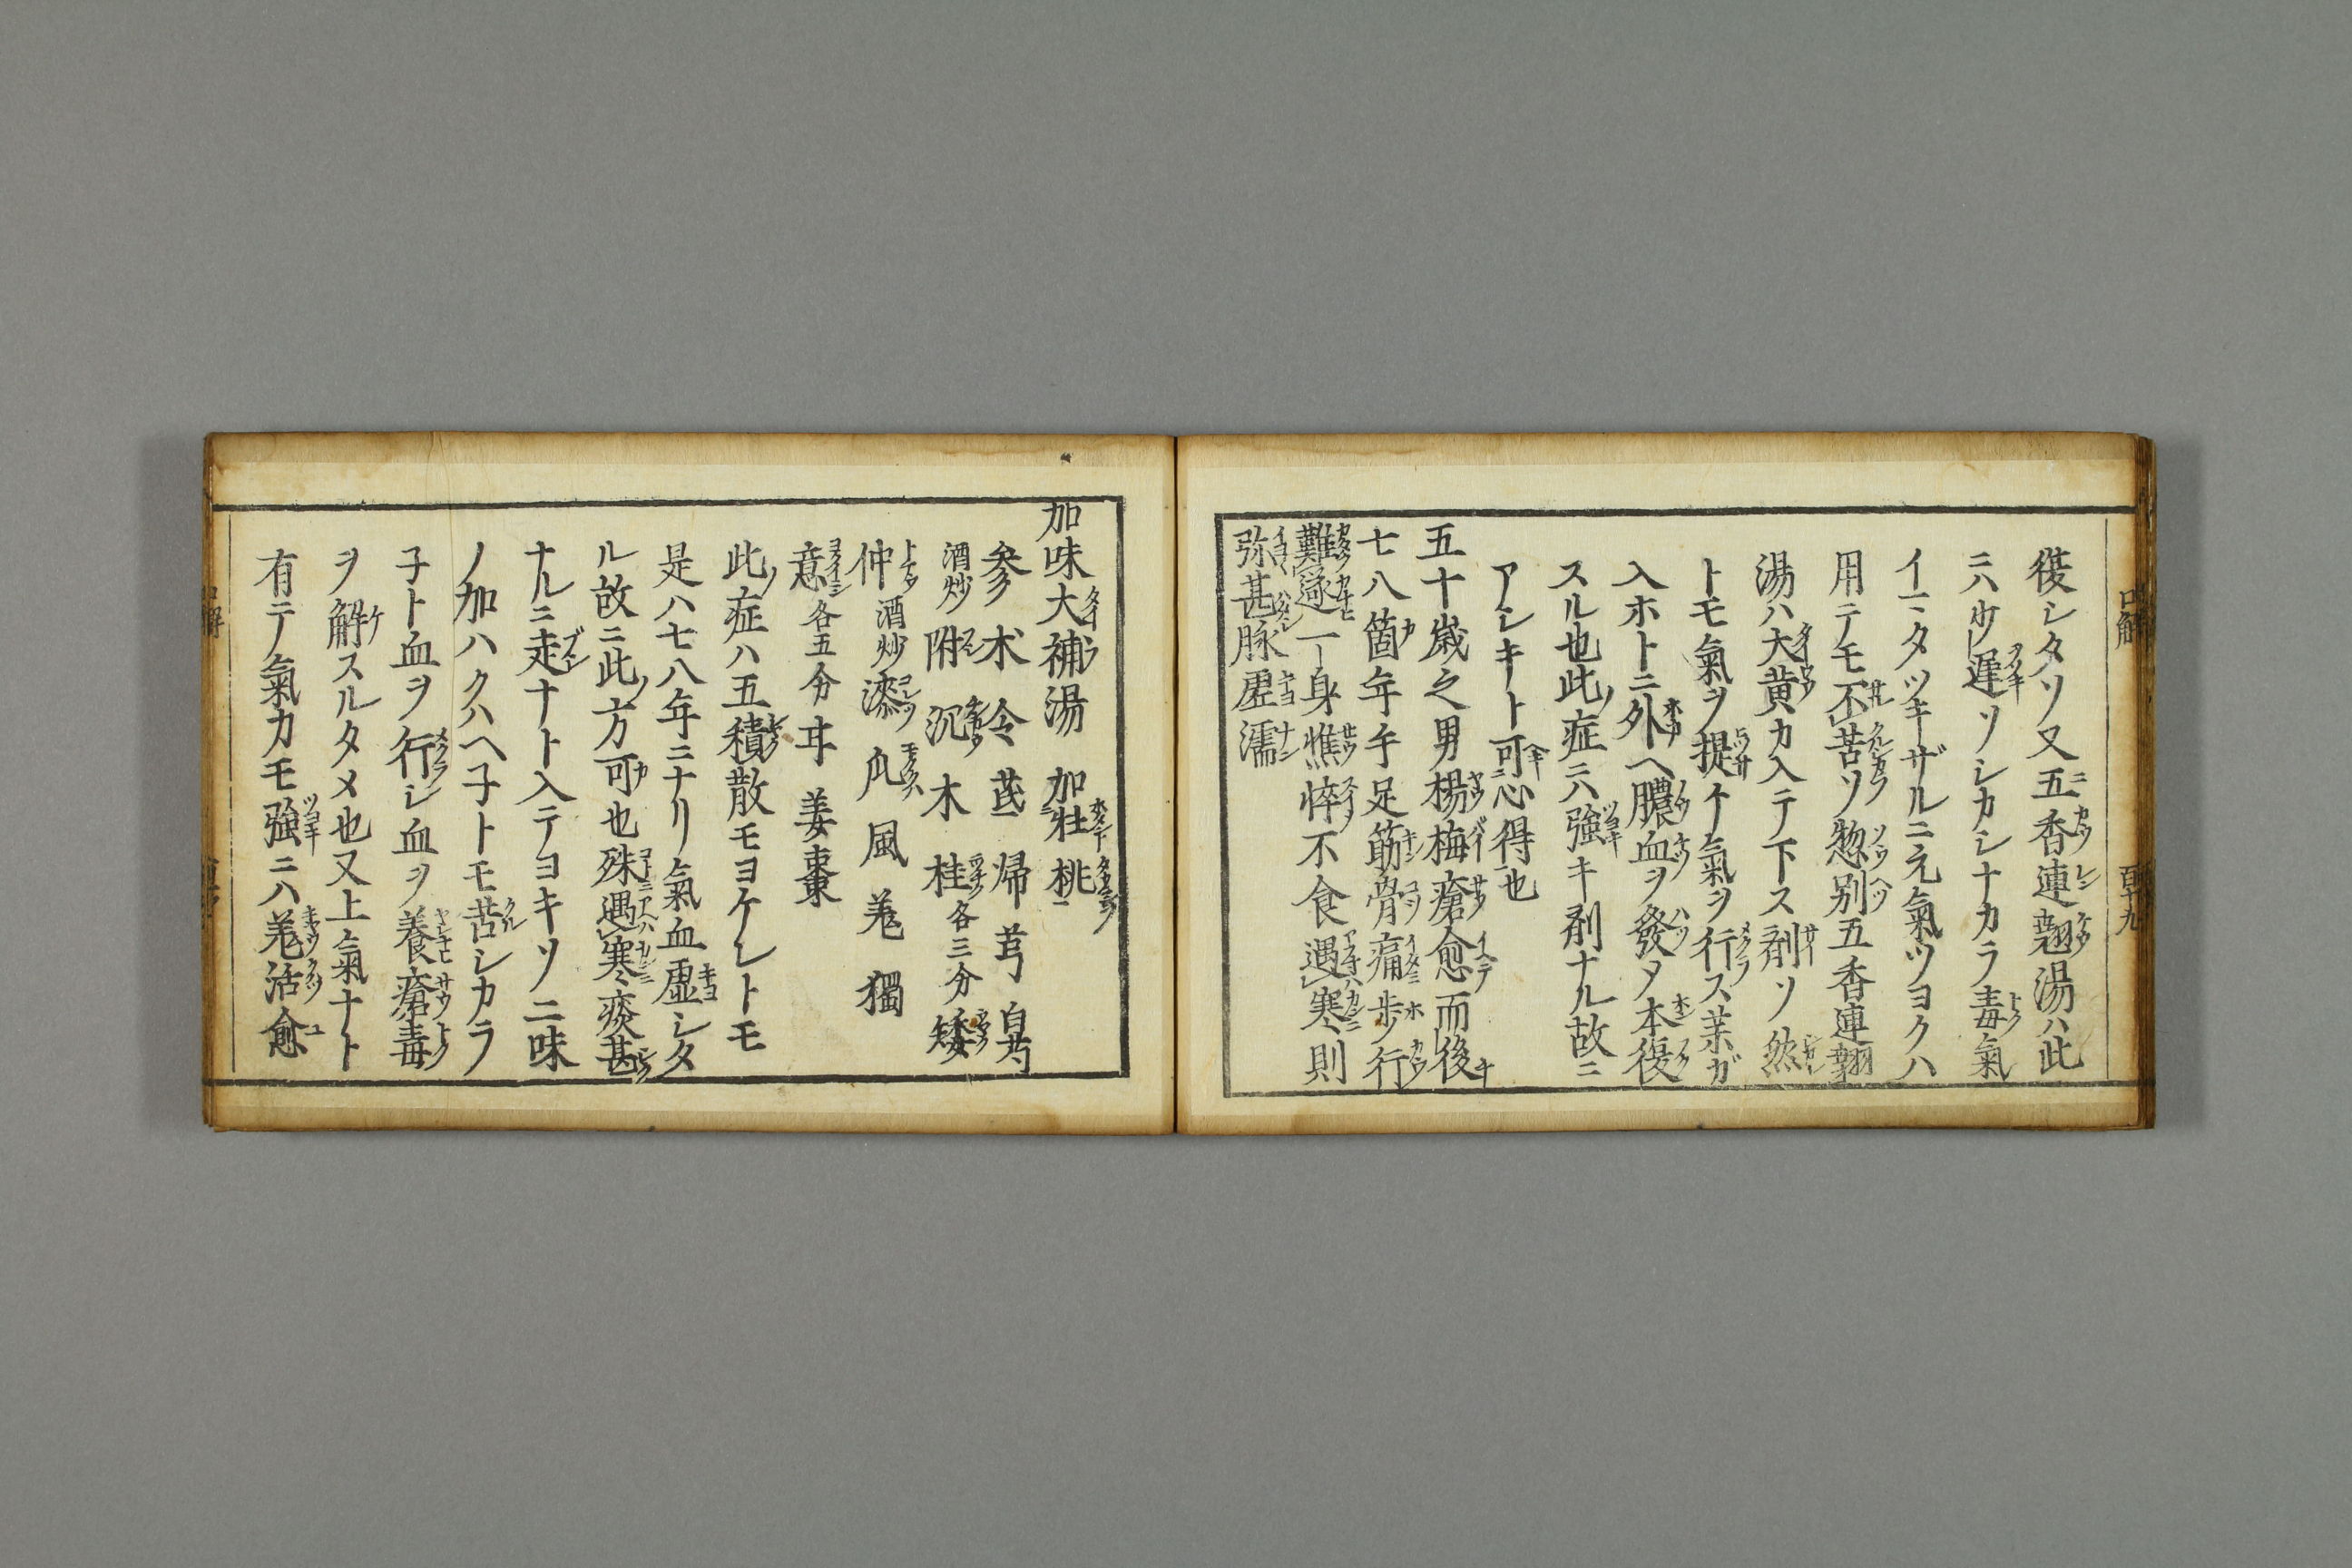 復シタソ又五香連翹湯ハ此
ニハ少遅ソシカシナカラ毒氣
イマタツキザルニ元氣ツヨクハ
用テモ不苦ソ惣別五香連翹
湯ハ大黄カ入テ下ス剤ソ然
トモ氣ヲ提ケ氣ヲ行ス薬ガ
入ホトニ外ヘ膿血ヲ發メ本復
スル也此ノ症ニハ強キ剤ナル故ニ
アシキト可心得也
五十歳之男楊梅瘡愈而後
七八箇年手足筋骨痛歩行
難遂一身憔悴不食遇寒則
弥甚脉虚濡
加味大補湯 加牡桃
参 朮 苓 茋 帰 芎 白芍
酒炒 附 沉 木 桂 各三分 矮
仲 酒炒 漆 瓜 風 羌 獨
意 各五分 㽵 姜棗
此ノ症ハ五積散モヨケレトモ
是ハ七八年ニナリ氣血虚シタ
ル故ニ此ノ方可也殊遇寒痰甚
ナルニ走ナト入テヨキソ二味
ノ加ハクハヘ子トモ苦シカラ
子ト血ヲ行シ血ヲ養瘡毒
ヲ解スルタメ也又上氣ナト
有テ氣カモ強ニハ羌活愈